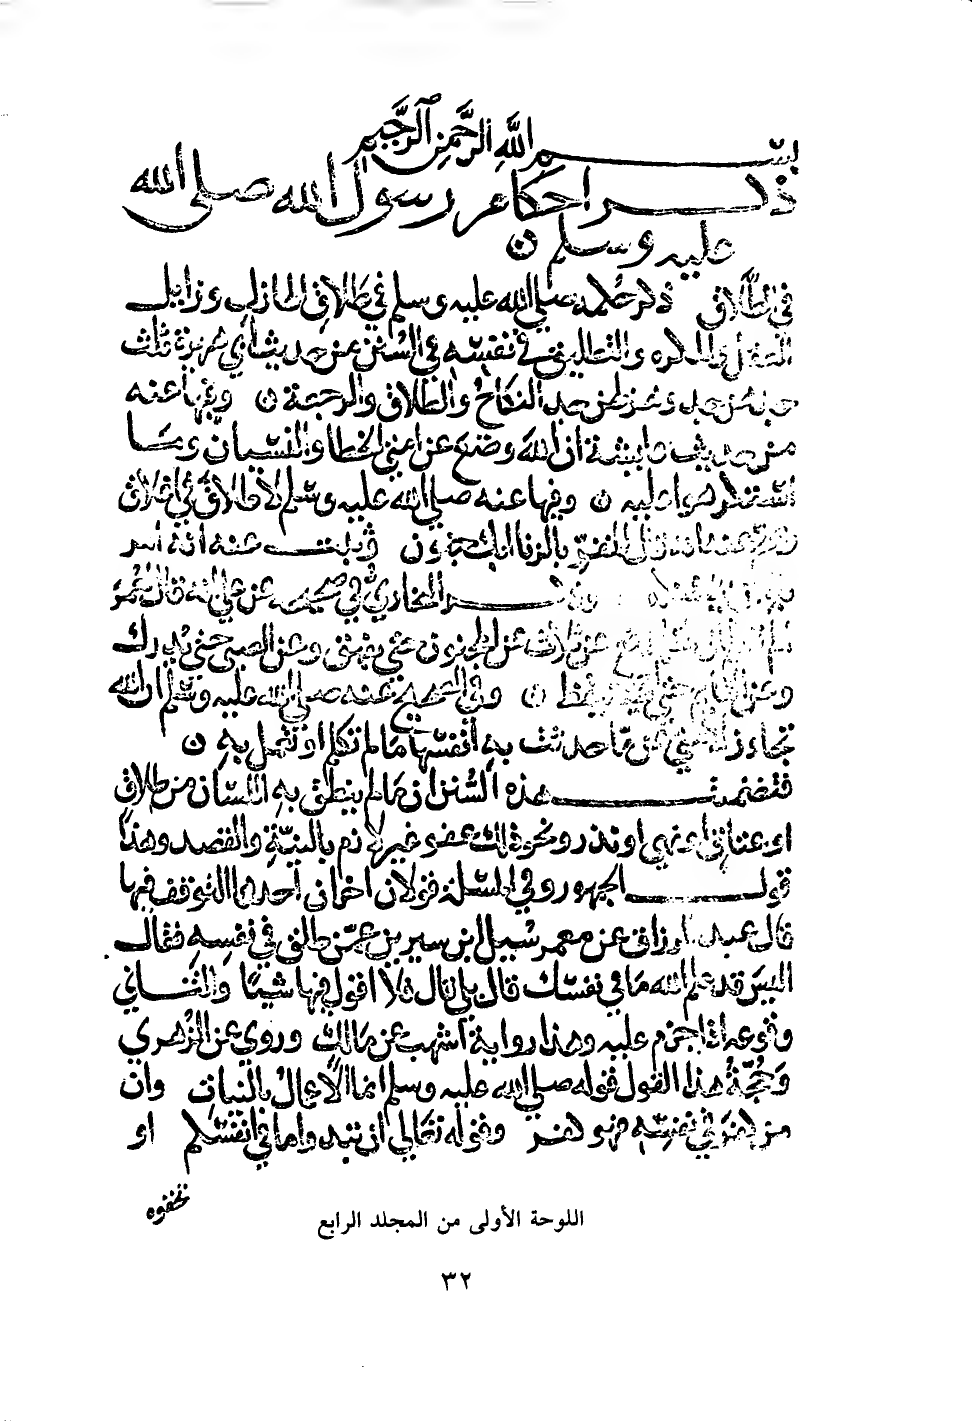 بسم الله الرحمن الرحيم
ذكر احكام رسول الله صلى الله
عليه وسلم ن
في الطلاق ذكر حكمه صلى الله عليه وسلم في طلاق الهازل وزايل
العقل والمكره والتطليق في نفسه في السنن من حديث ابي هريرة ثلاث
جدهن جد وهزلهن جد النكاح والطلاق والرجعة ن وفيها عنه
من حديث عايشة ان الله وضع عن امتي الخطا والنسيان وما
استكرهوا عليه ن وفيها عنه صلى الله عليه وسلم لا طلاق في اغلاق
وصح عنه انه قال للمقر بالزنا ابك جنون ن وثبت عنه انه امر
به ان يستنكه وذكر البخاري في صحيحه عن علي انه قال لعمر
ان القلم رفع عن ثلاث عن المجنون حتى يفيق وعن الصبي حتى يدرك
وعن النايم حتى يستيقظ ن وفي الصحيح عنه صلى الله عليه وسلم ان الله
تجاوز لامتي عن ما حدثت به انفسها ما لم تكلم او تعمل به ن
فتضمنت هذه السنن ان ما لم ينطق به اللسان من طلاق
او عتاق او نهي او نذر ونحو ذلك عفو غير لازم بالنية والقصد وهذا
قول الجمهور وفي المسلة قولان اخران احدهما التوقف فيها
قال عبد الرزاق عن معمر سيل ابن سيرين عمن طلق في نفسه فقال
اليس قد علم الله ما في نفسك قال بلى قال فلا اقول فيها شيئا والثاني
وقوعه اذا جزم عليه وهذا رواية اشهب عن مالك وروي عن الزهري
وحجة هذا القول قوله صلى الله عليه وسلم انما الاعمال بالنيات وان
من كفر في نفسه فهو كفر وقوله تعالى ان تبدوا ما في انفسكم او
تخفوه
اللوحة الأولى من المجلد الرابع
٣٢